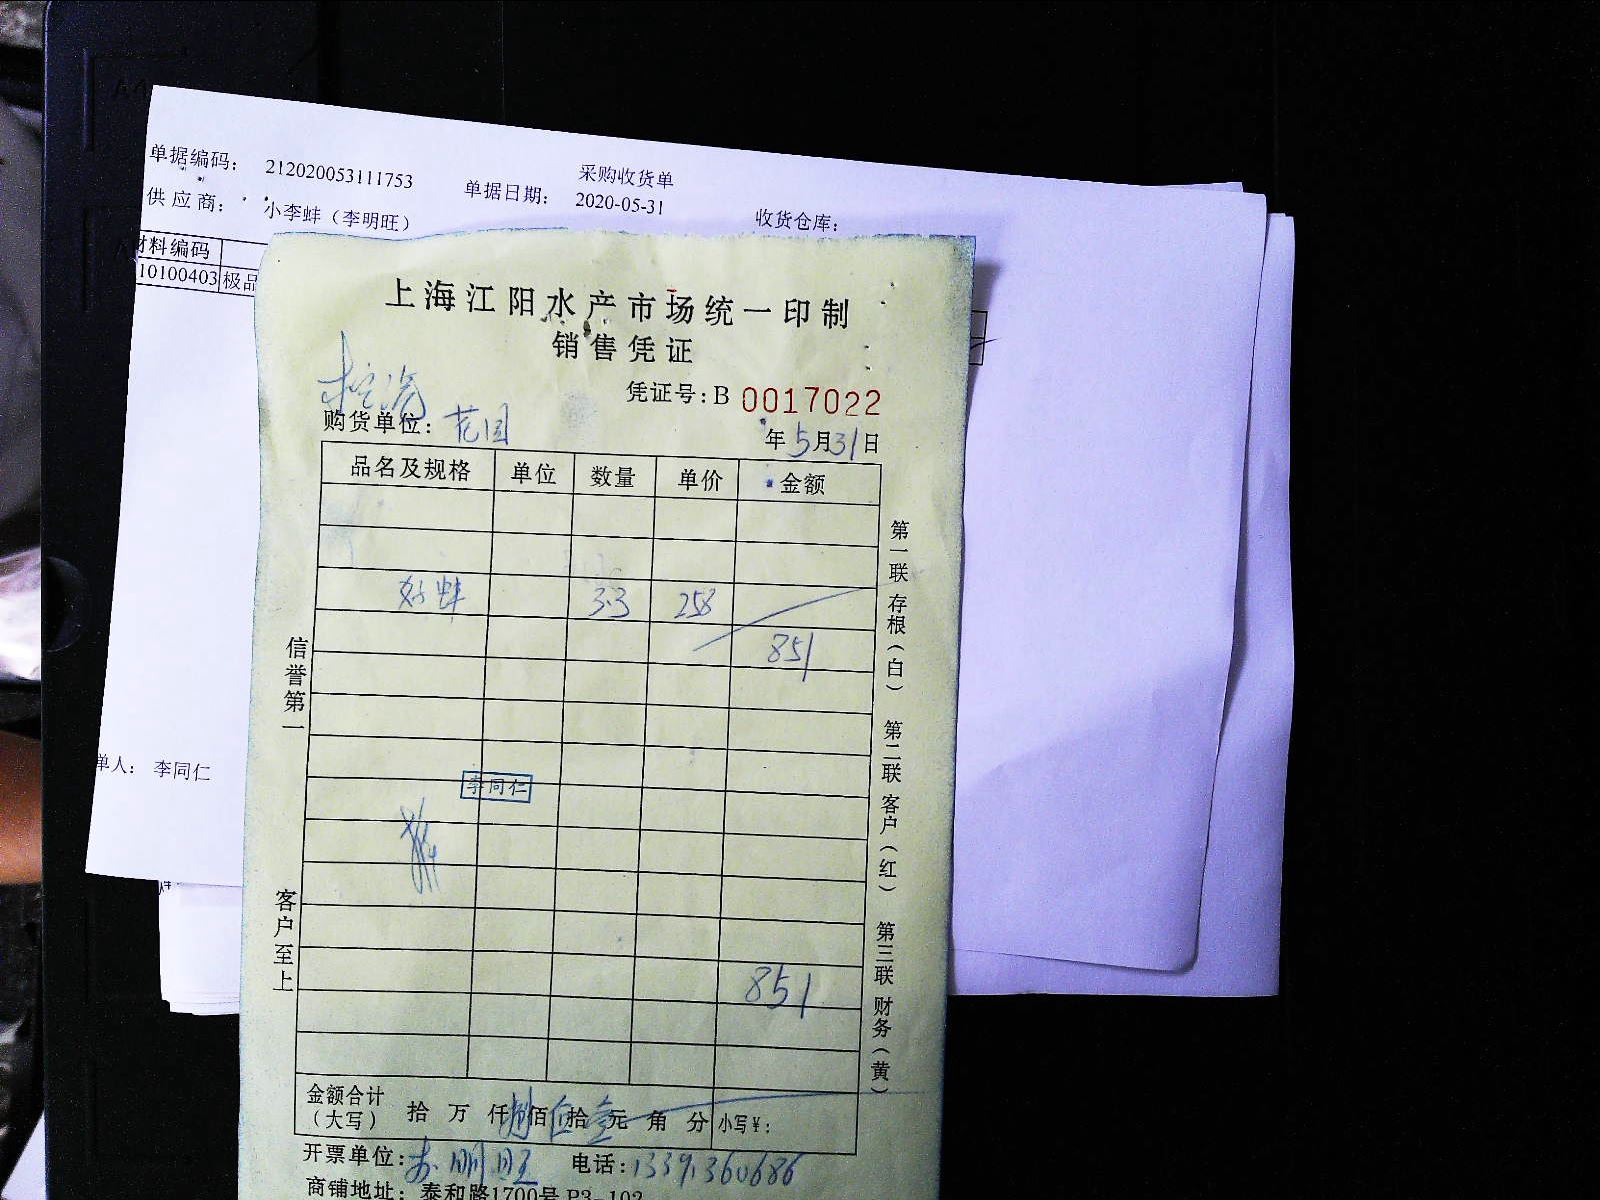 采购收货单
单据编码： 212020053111753 单据日期： 2020-05-31 收货仓库：
供应商： 小李蚌（李明旺）
材料编码
10100403 极品
单人： 李同仁
上海江阳水产市场统一印制
销售凭证
凭证号：B 0017022
购货单位： 花园
年5月31日
品名及规格 单位 数量 单价 金额
好蚌 3.3 258
851
李同仁
851
金额合计（大写） 拾 万 仟 捌佰 伍拾 壹元 角 分 小写¥：
开票单位：李明旺 电话：13391360686
商铺地址：泰和路1700号P3-102
信誉第一
客户至上
第一联 存根（白） 第二联 客户（红） 第三联 财务（黄）